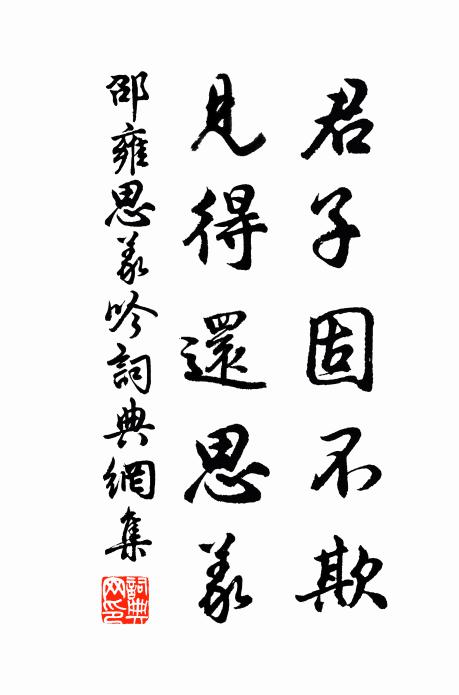 君子固不欺
見得還思義
邵雍思義吟詞典網集
詞典网印